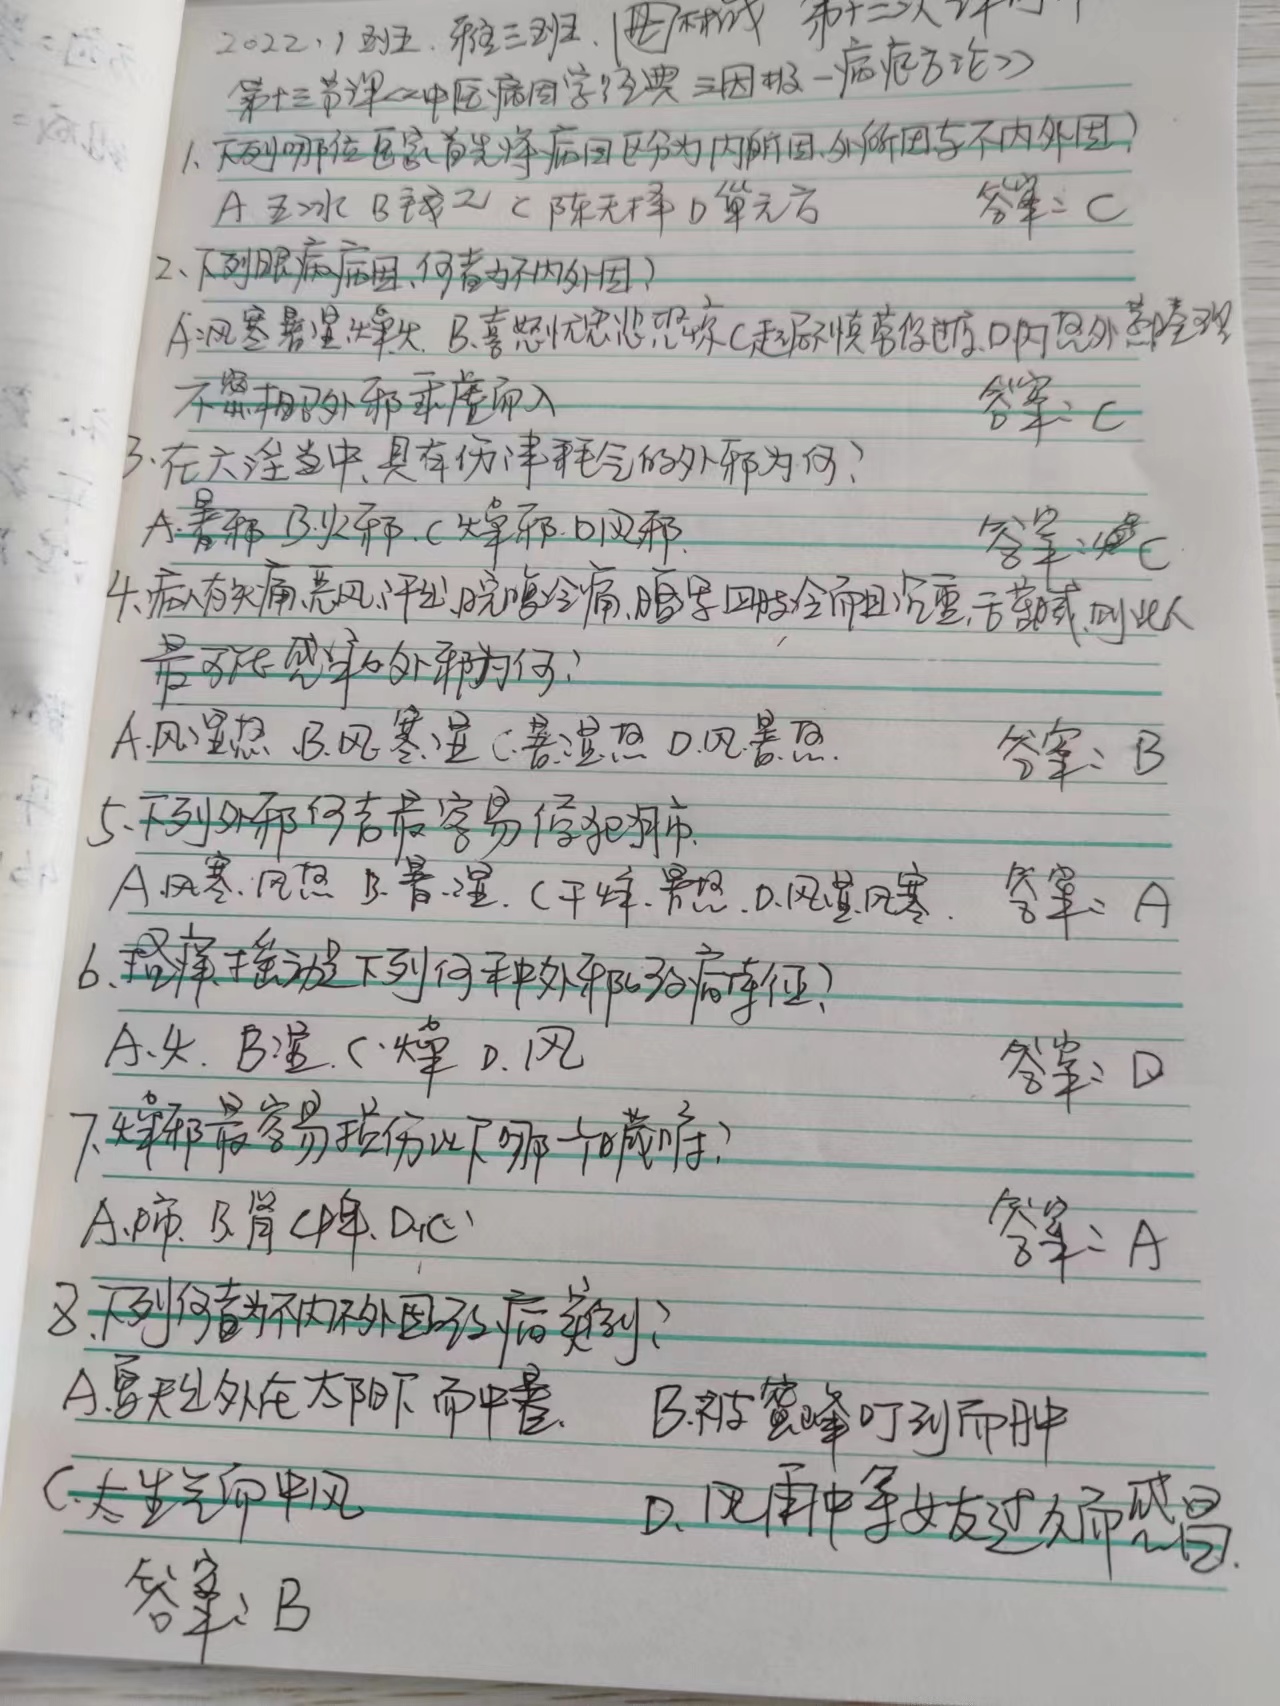 2022.1班五.雅三班.林城 第十三次课
第十三节课《中医病因学经典三因极一病症方论》
1、下列哪位医家首先将病因区分为内所因、外所因与不内外因？
A 王冰 B钱乙 C 陈无择 D 单元方 答案：C
2、下列眼病病因、何者为不内外因？
A:风寒暑湿燥火. B.喜怒忧思悲恐惊 C起居不慎劳倦过度.D.内热外蒸腠理
不密相召外邪乘虚而入 答案：C
3.在六淫当中、具有伤津耗气的外邪为何？
A.暑邪 B.火邪.C燥邪.D风邪. 答案：C
4、病人有头痛、恶风、汗出、脘腹冷痛、腹泻四肢冷而且沉重、舌苔腻、则此人
最可能感牵的外邪为何？
A.风湿热 B.风寒湿 C.暑湿热 D.风暑热. 答案：B
5、下列外邪何者最容易侵犯肺.
A.风寒.风热 B.暑.湿. C干燥.暑热.D.风湿.风寒. 答案：A
6、搔痒、摇动是下列何种外邪的致病特征？
A.火. B湿. C.燥 D.风 答案：D
7、燥邪最容易损伤以下哪一个脏腑？
A.肺. B.肾 C脾.D.心 答案：A
8、下列何者为不内不外因致病类别？
A.夏天出外在太阳下而中暑. B.被蜜蜂叮到而肿
C.太生气而中风 D、风雨中等女友过久而感冒.
答案：B